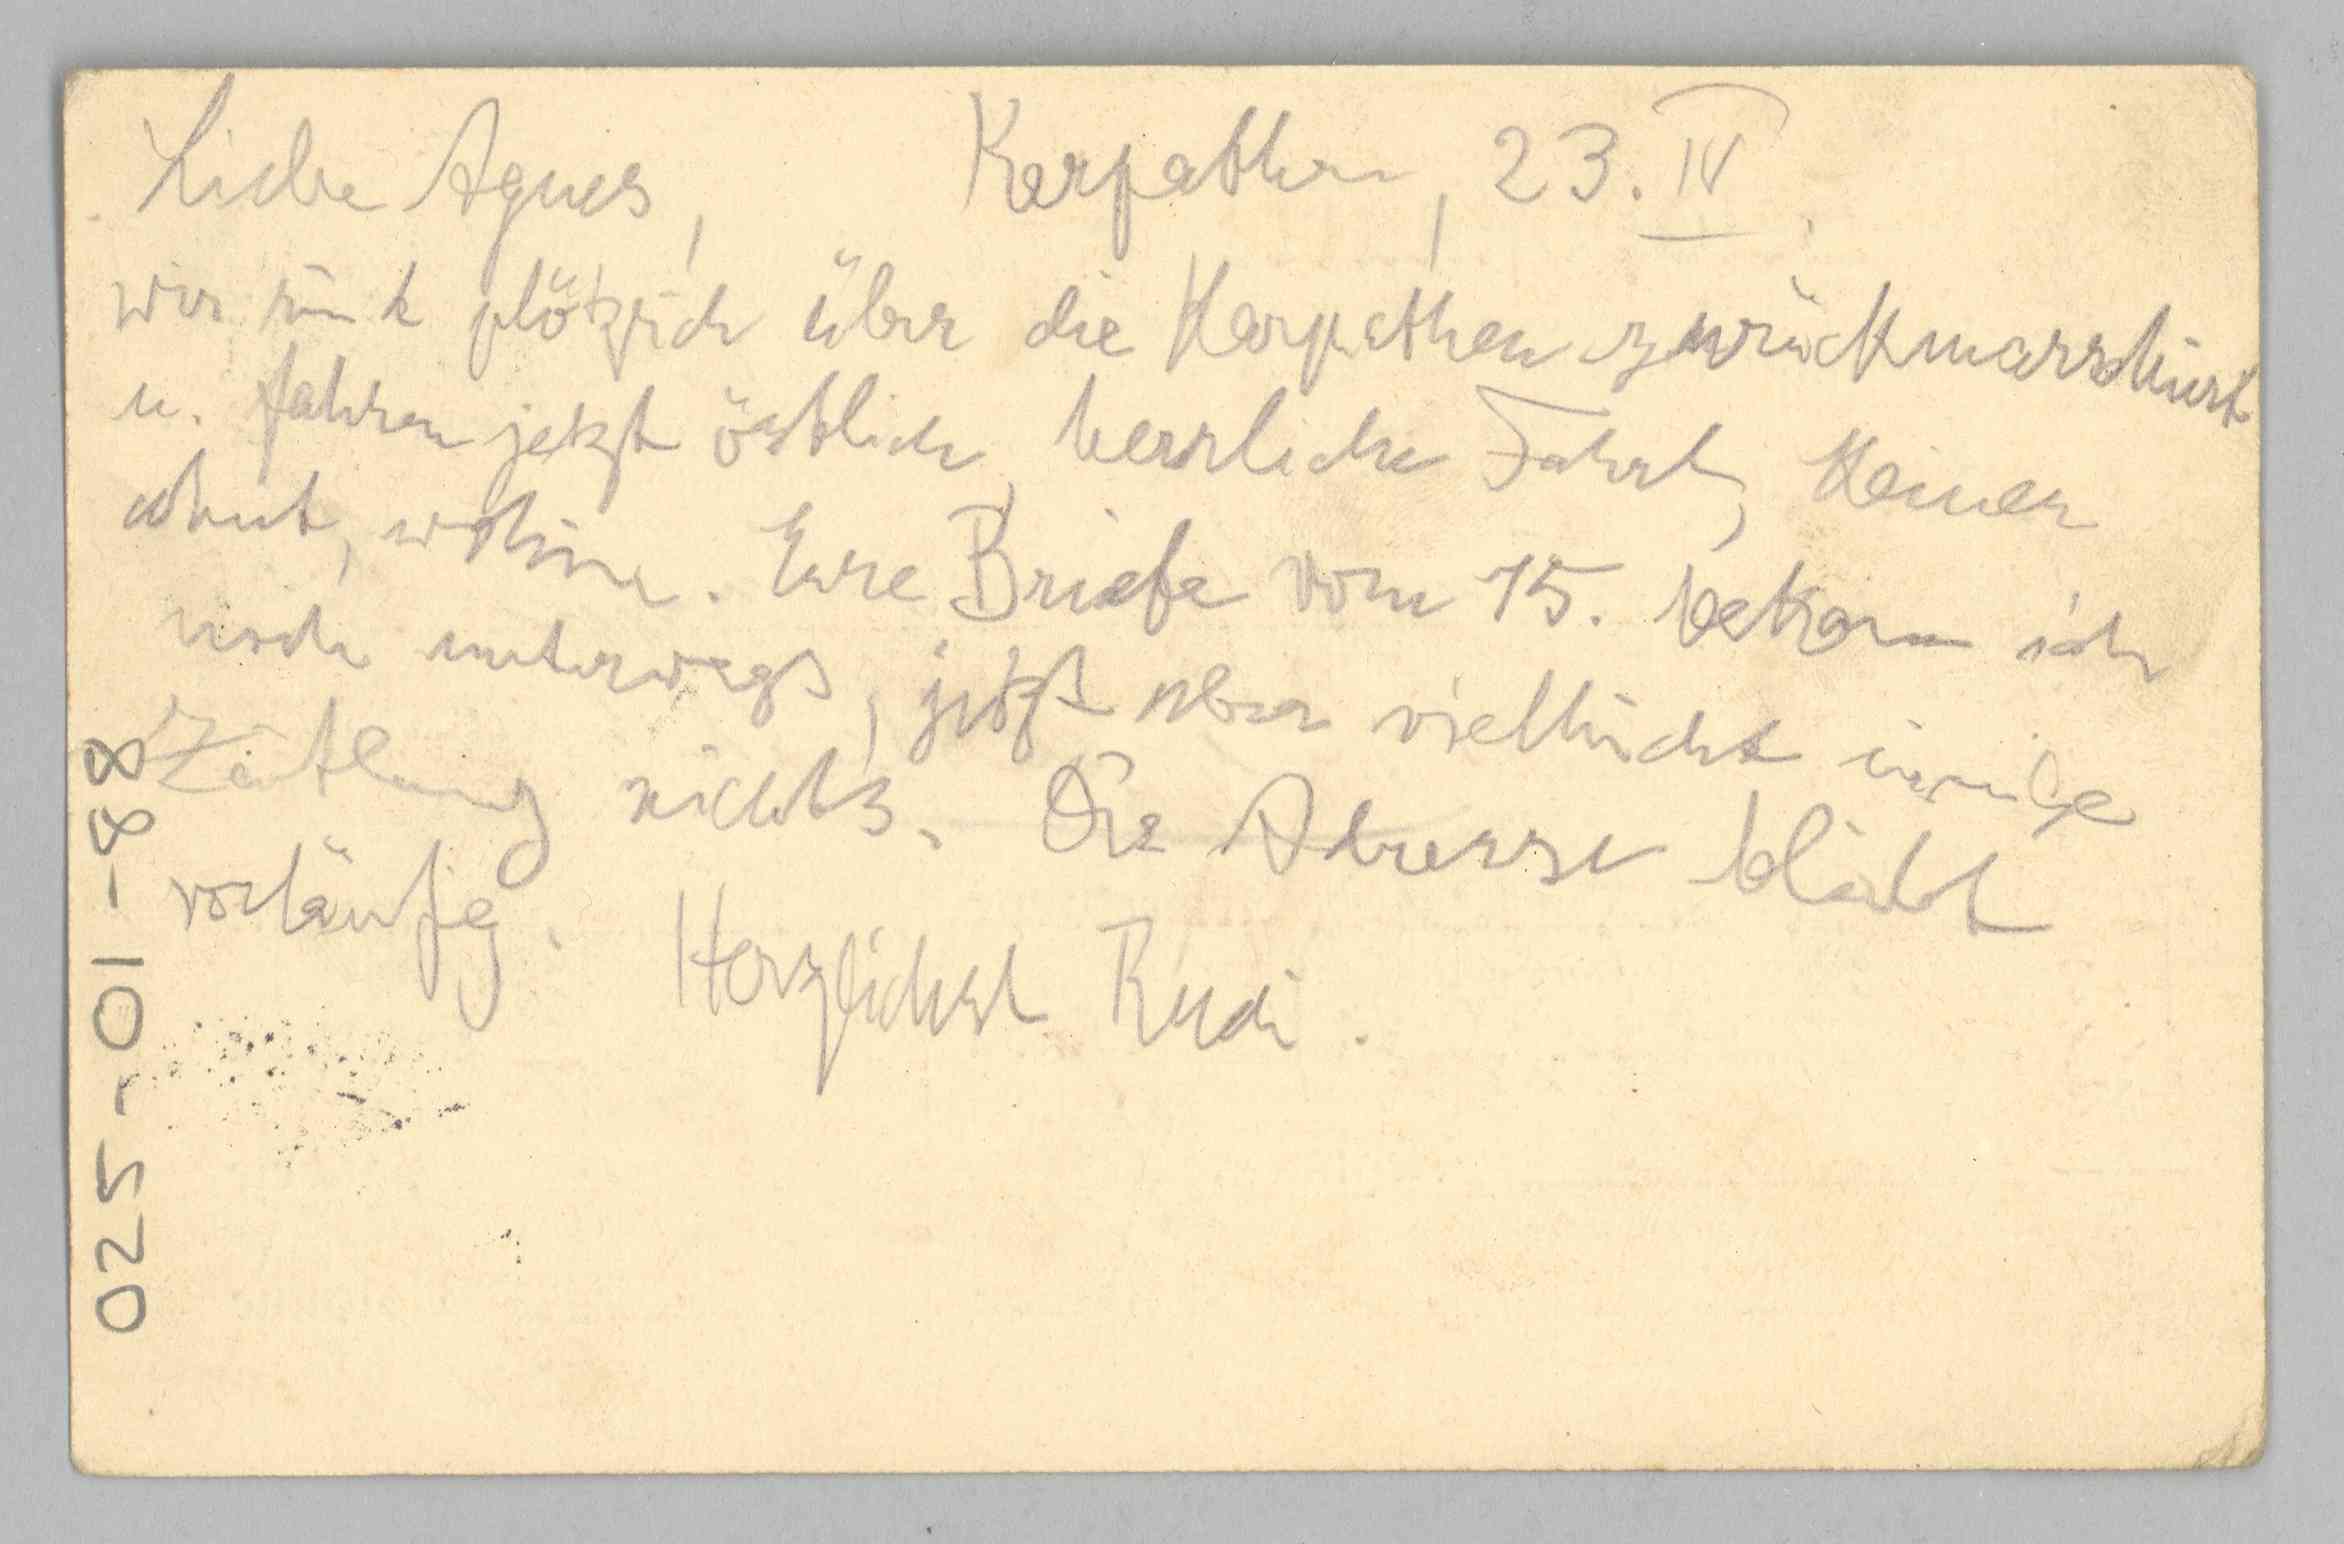 Liebe Agnes, Karpathen, 23. IV.
wir sind plötzlich über die Karpathen zurückmarschiert
u. fahren jetzt östlich, herrliche Fahrt, keiner
ahnt, wohin. Eure Briefe vom 15. bekam ich
noch unterwegs, jetzt aber vielleicht einige
Zeitlang nichts. Die Adresse bleibt
vorläufig. Herzlichst Rudi.
025-01-88